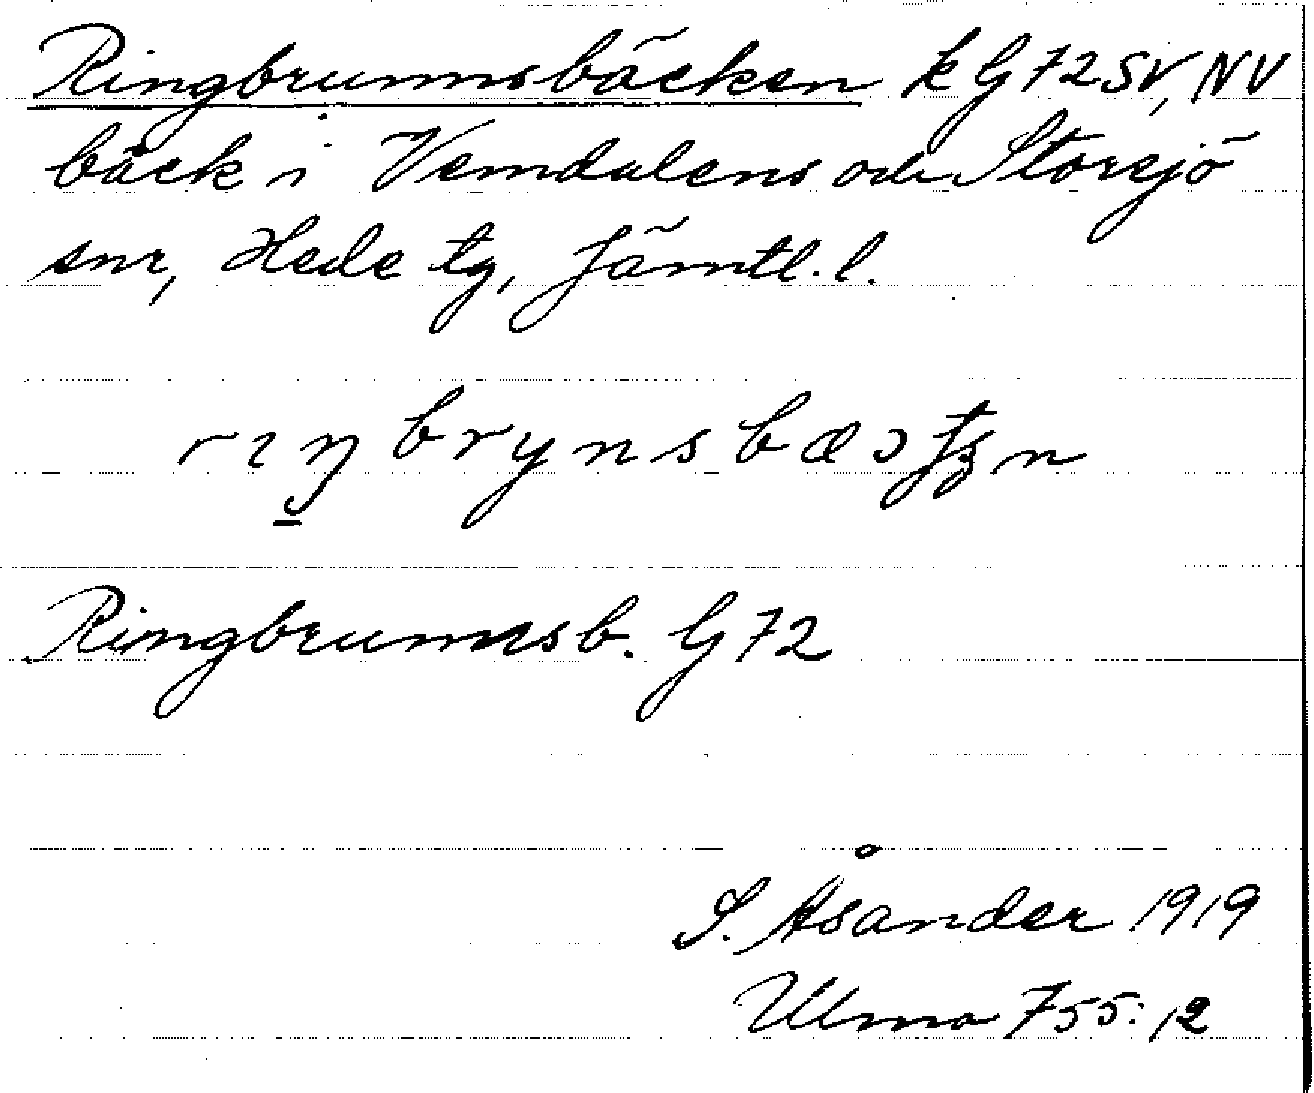 Ringbrunnsbäcken k G 72 SV, NV
bäck i Vemdalens och Storsjö
snr, Hede tg, Jämtl. l.
Ringbrunnsb. G 72
S. Åsander 1919
Ulma 755:12